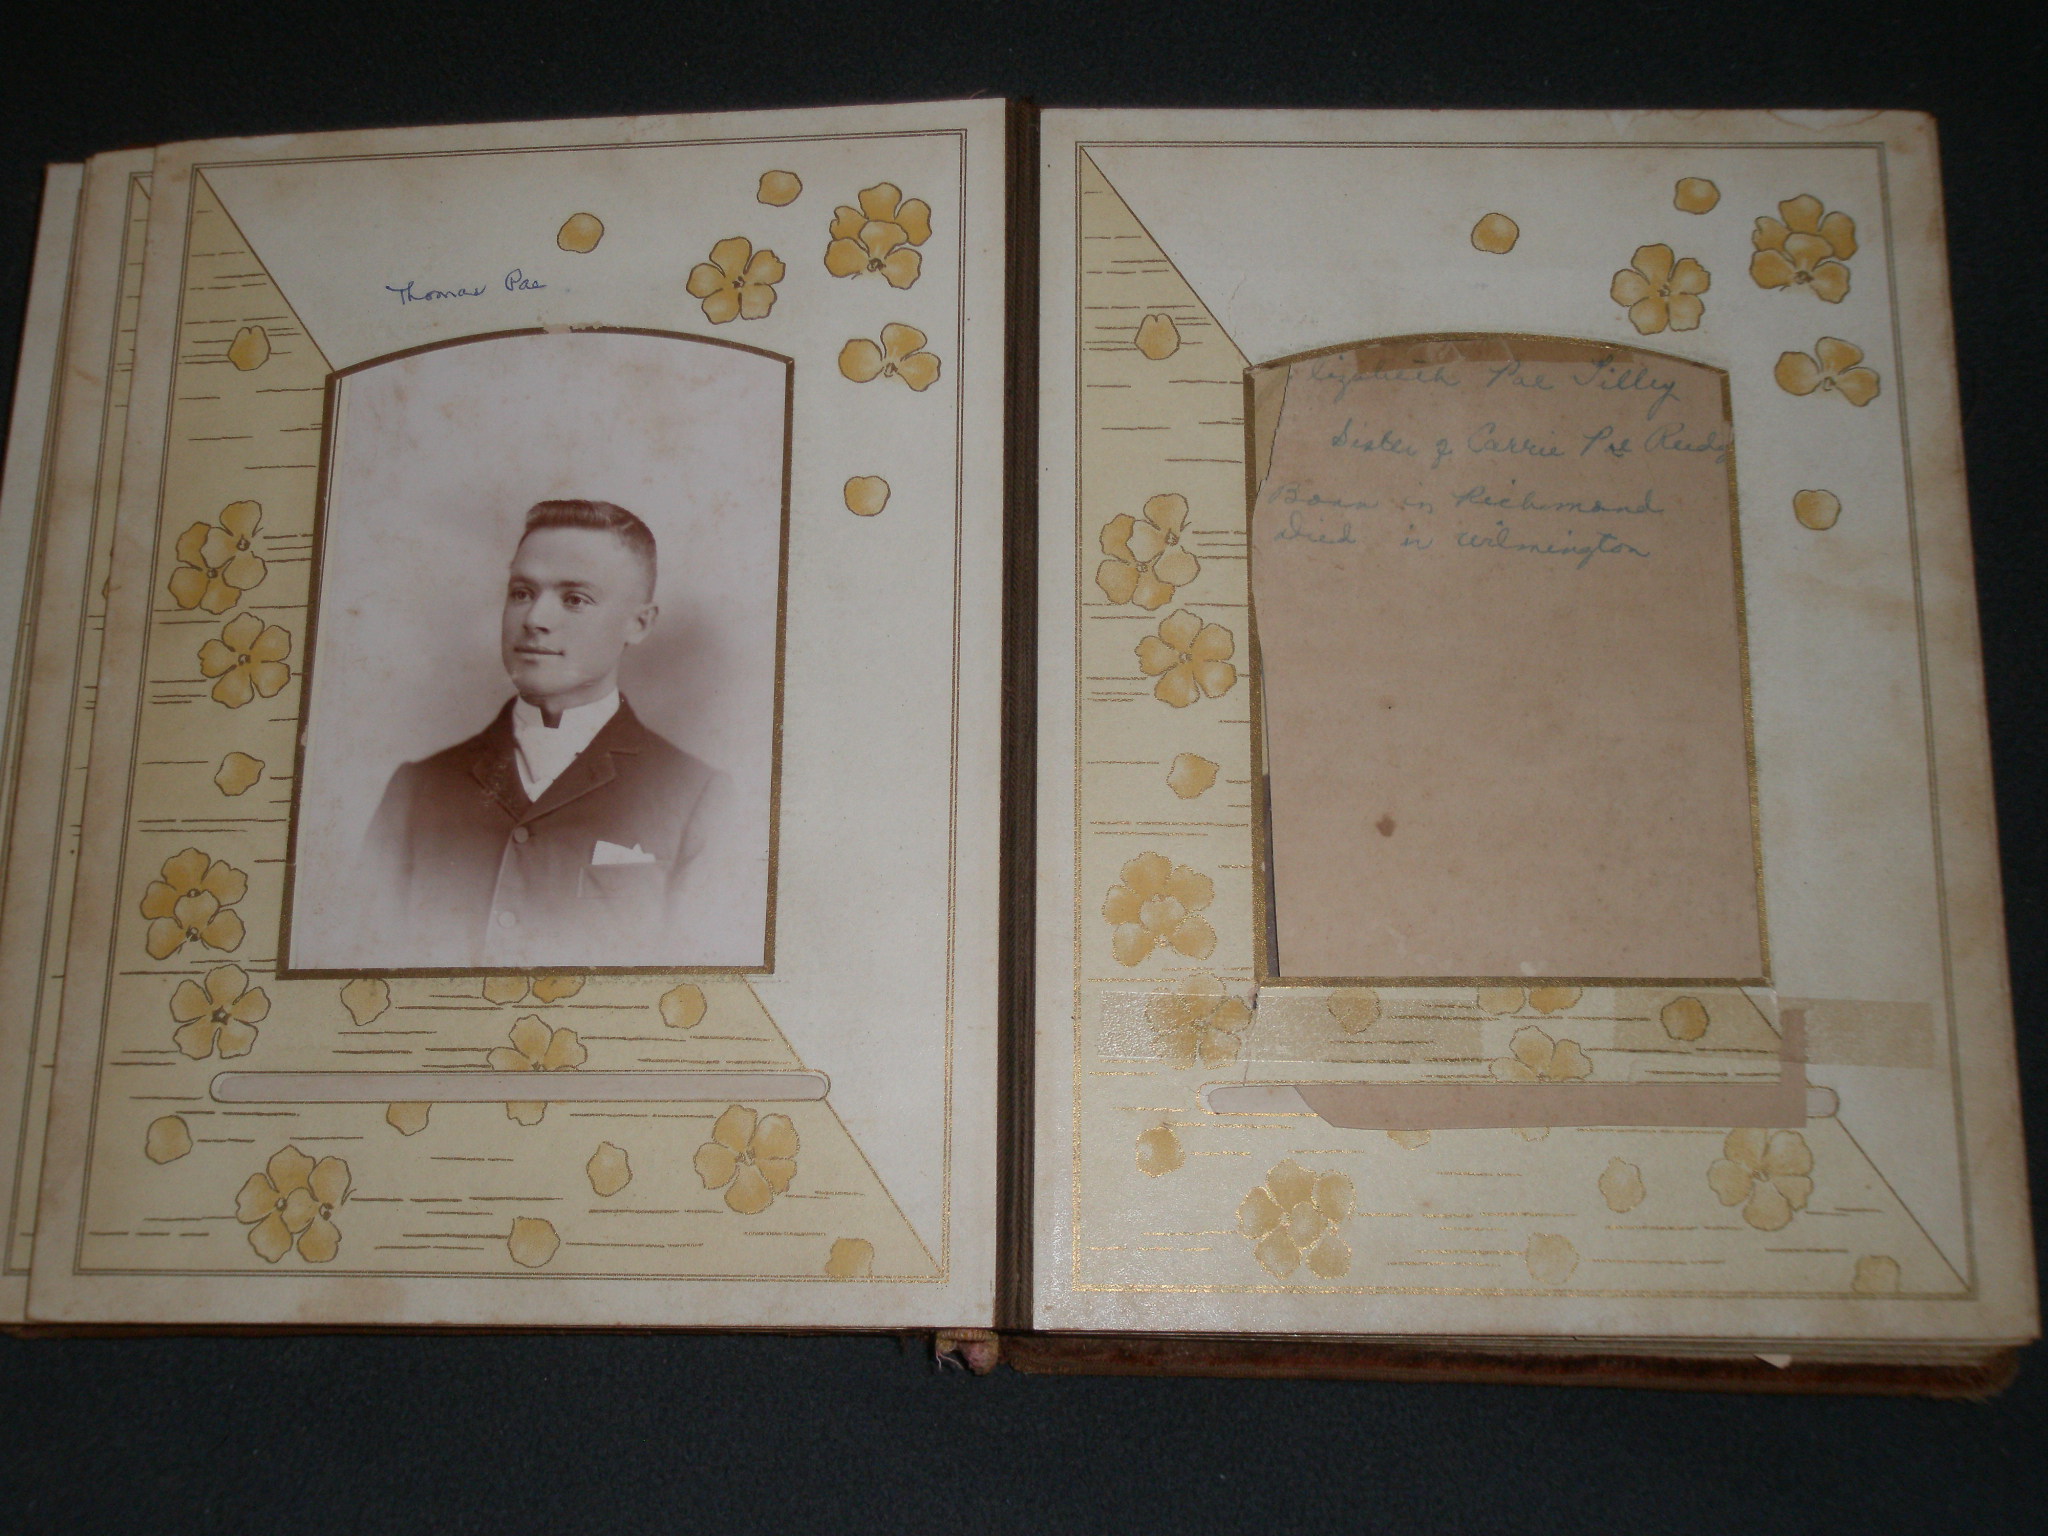 Thomas Pae
Elizabeth Pae Tilley
Sister of Carrie Pae
Born in Richmond
Died in Wilmington